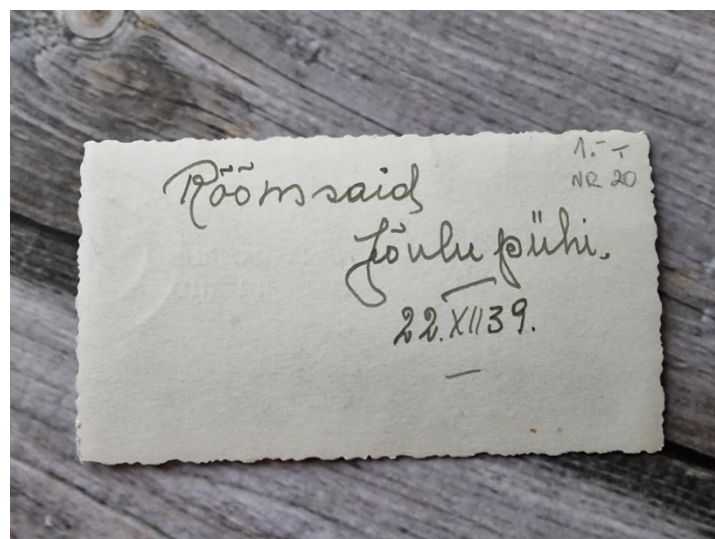 1.- T
NR 20
Rõõmsaid
Jõulu pühi.
22.XII39.